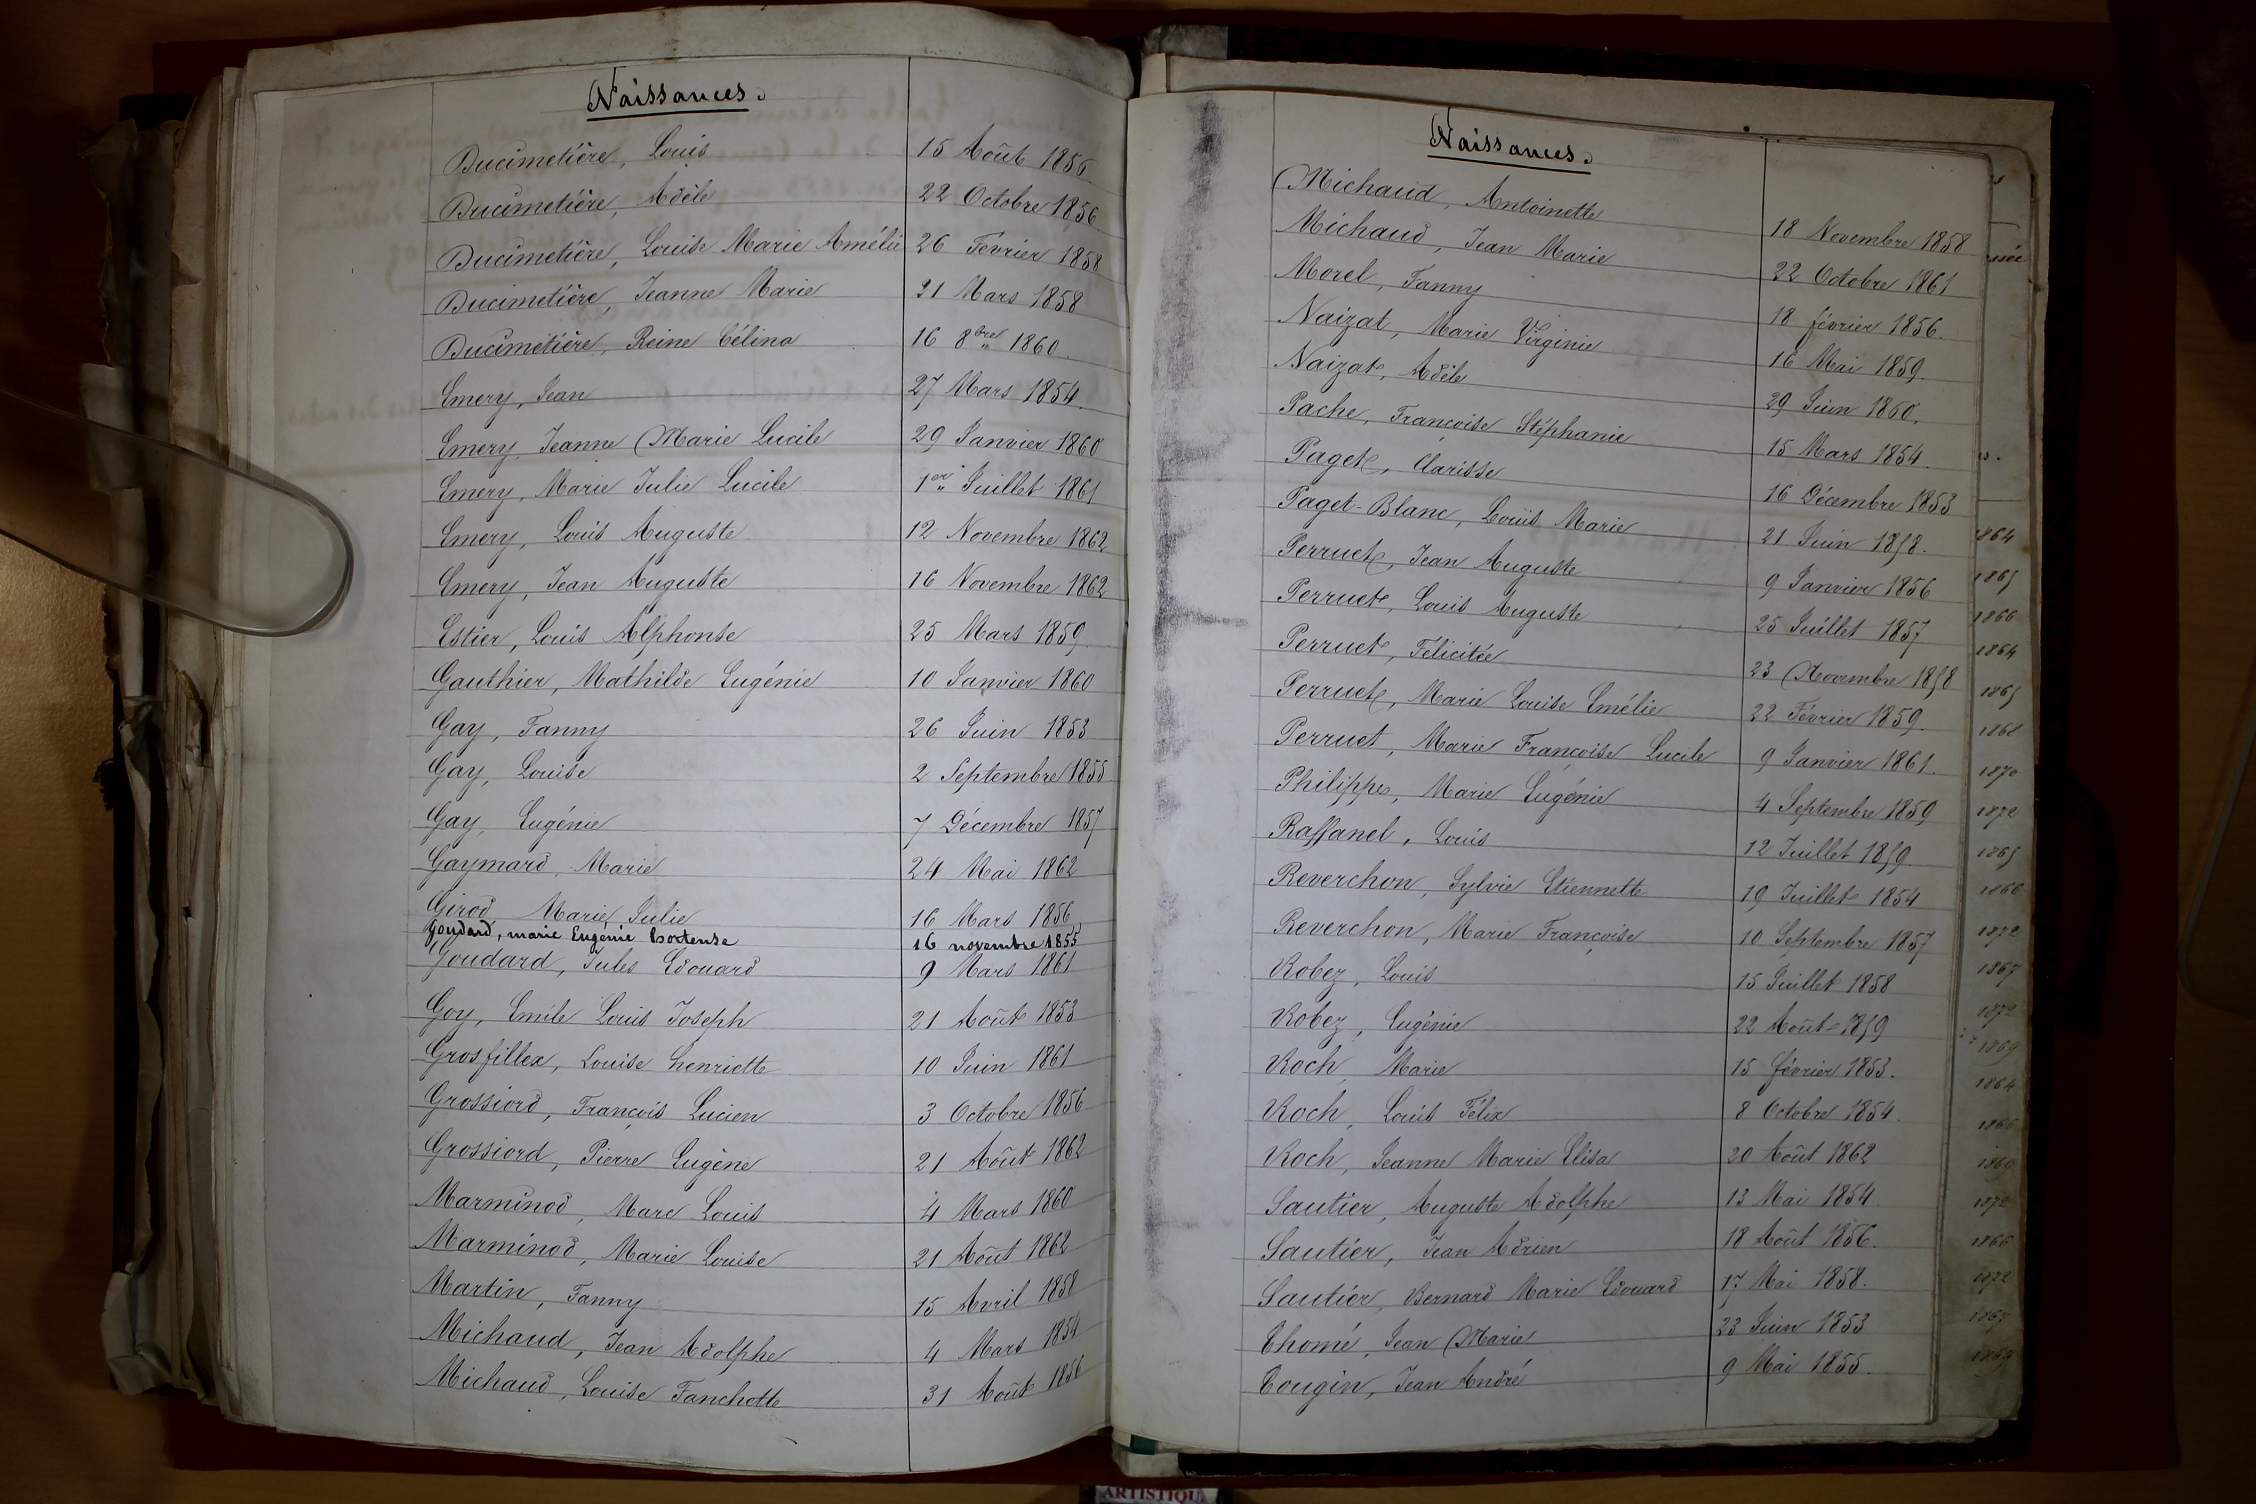 Naissances.
Ducimetière, Louis 15 Août 1856
Ducimetière, Adèle 22 Octobre 1856
Ducimetière, Louise Marie Amélie 26 Février 1858
Ducimetière, Jeanne Marie 31 Mars 1858
Ducimetière, Reine Célina 16 8bre 1860
Emery, Jean 27 Mars 1854
Emery, Jeanne Marie Lucile 29 Janvier 1860
Emery, Marie Julie Lucile 1er Juillet 1861
Emery, Louis Auguste 12 Novembre 1862
Emery, Jean Auguste 16 Novembre 1862
Estier, Louis Alphonse 25 Mars 1859
Gauthier, Mathilde Eugénie 10 Janvier 1860
Gay, Fanny 26 Juin 1853
Gay, Louise 2 Septembre 1855
Gay, Eugénie 7 Décembre 1857
Gaymard, Marie 24 Mai 1862
Girod Marie Julie 16 Mars 1856
Goudard, marie Eugénie hortense 16 novembre 1855
Goudard, Jules Edouard 9 Mars 1861
Goy, Emile Louis Joseph 21 Août 1853
Grosfillex, Louise henriette 10 Juin 1861
Grossiord, François Lucien 3 Octobre 1856
Grossiord, Pierre Eugène 21 Août 1862
Marminod, Marc Louis 4 Mars 1860
Marminod, Marie Louise 21 Août 1862
Martin, Fanny 15 Avril 1858
Michaud, Jean Adolphe 4 Mars 1854
Michaud, Louise Fanchette 31 Août 1856
Naissances.
Michaud, Antoinette 18 Novembre 1858
Michaud, Jean Marie 22 Octobre 1861
Morel, Fanny 18 février 1856.
Naizat, Marie Virginie 16 Mai 1859.
Naizat, Adèle 29 Juin 1860.
Pache, Françoise Stéphanie 15 Mars 1854.
Paget, Clarisse 16 Décembre 1853
Paget-Blanc, Louis Marie 21 Juin 1858.
Perruet, Jean Auguste 9 Janvier 1856
Perruet, Louis Auguste 25 Juillet 1857
Perruet, Félicitée 23 Novembre 1858
Perruet, Marie Louise Emélie 22 Février 1859.
Perruet, Marie Françoise Lucile 9 Janvier 1861.
Philippe, Marie Eugénie 4 Septembre 1859
Raffanel, Louis 12 Juillet 1859
Reverchon, Sylvie Etiennette 19 Juillet 1854
Reverchon, Marie Françoise 10 Septembre 1857
Robez, Louis 15 Juillet 1858
Robez, Eugénie 22 Août 1859
Roch, Marie 15 février 1853.
Roch, Louis Félix 8 Octobre 1854.
Roch, Jeanne Marie Elisa 20 Août 1862
Sautier, Auguste Adolphe 13 Mai 1854.
Sautier, Jean Adrien 18 Août 1856.
Sautier, Bernard Marie Edouard 17 Mai 1858.
Thomé, Jean Marie 23 Juin 1853
Tougin, Jean André 9 Mai 1855.
1864
1865
1866
1864
1865
1868
1870
1872
1865
1866
1872
1867
1872
1869
1864
1866
1869
1872
1866
1872
1867
1869
ARTISTIQU